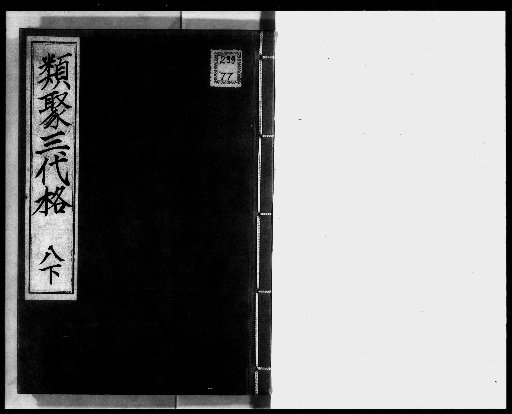 類聚三代格
八下
239
77